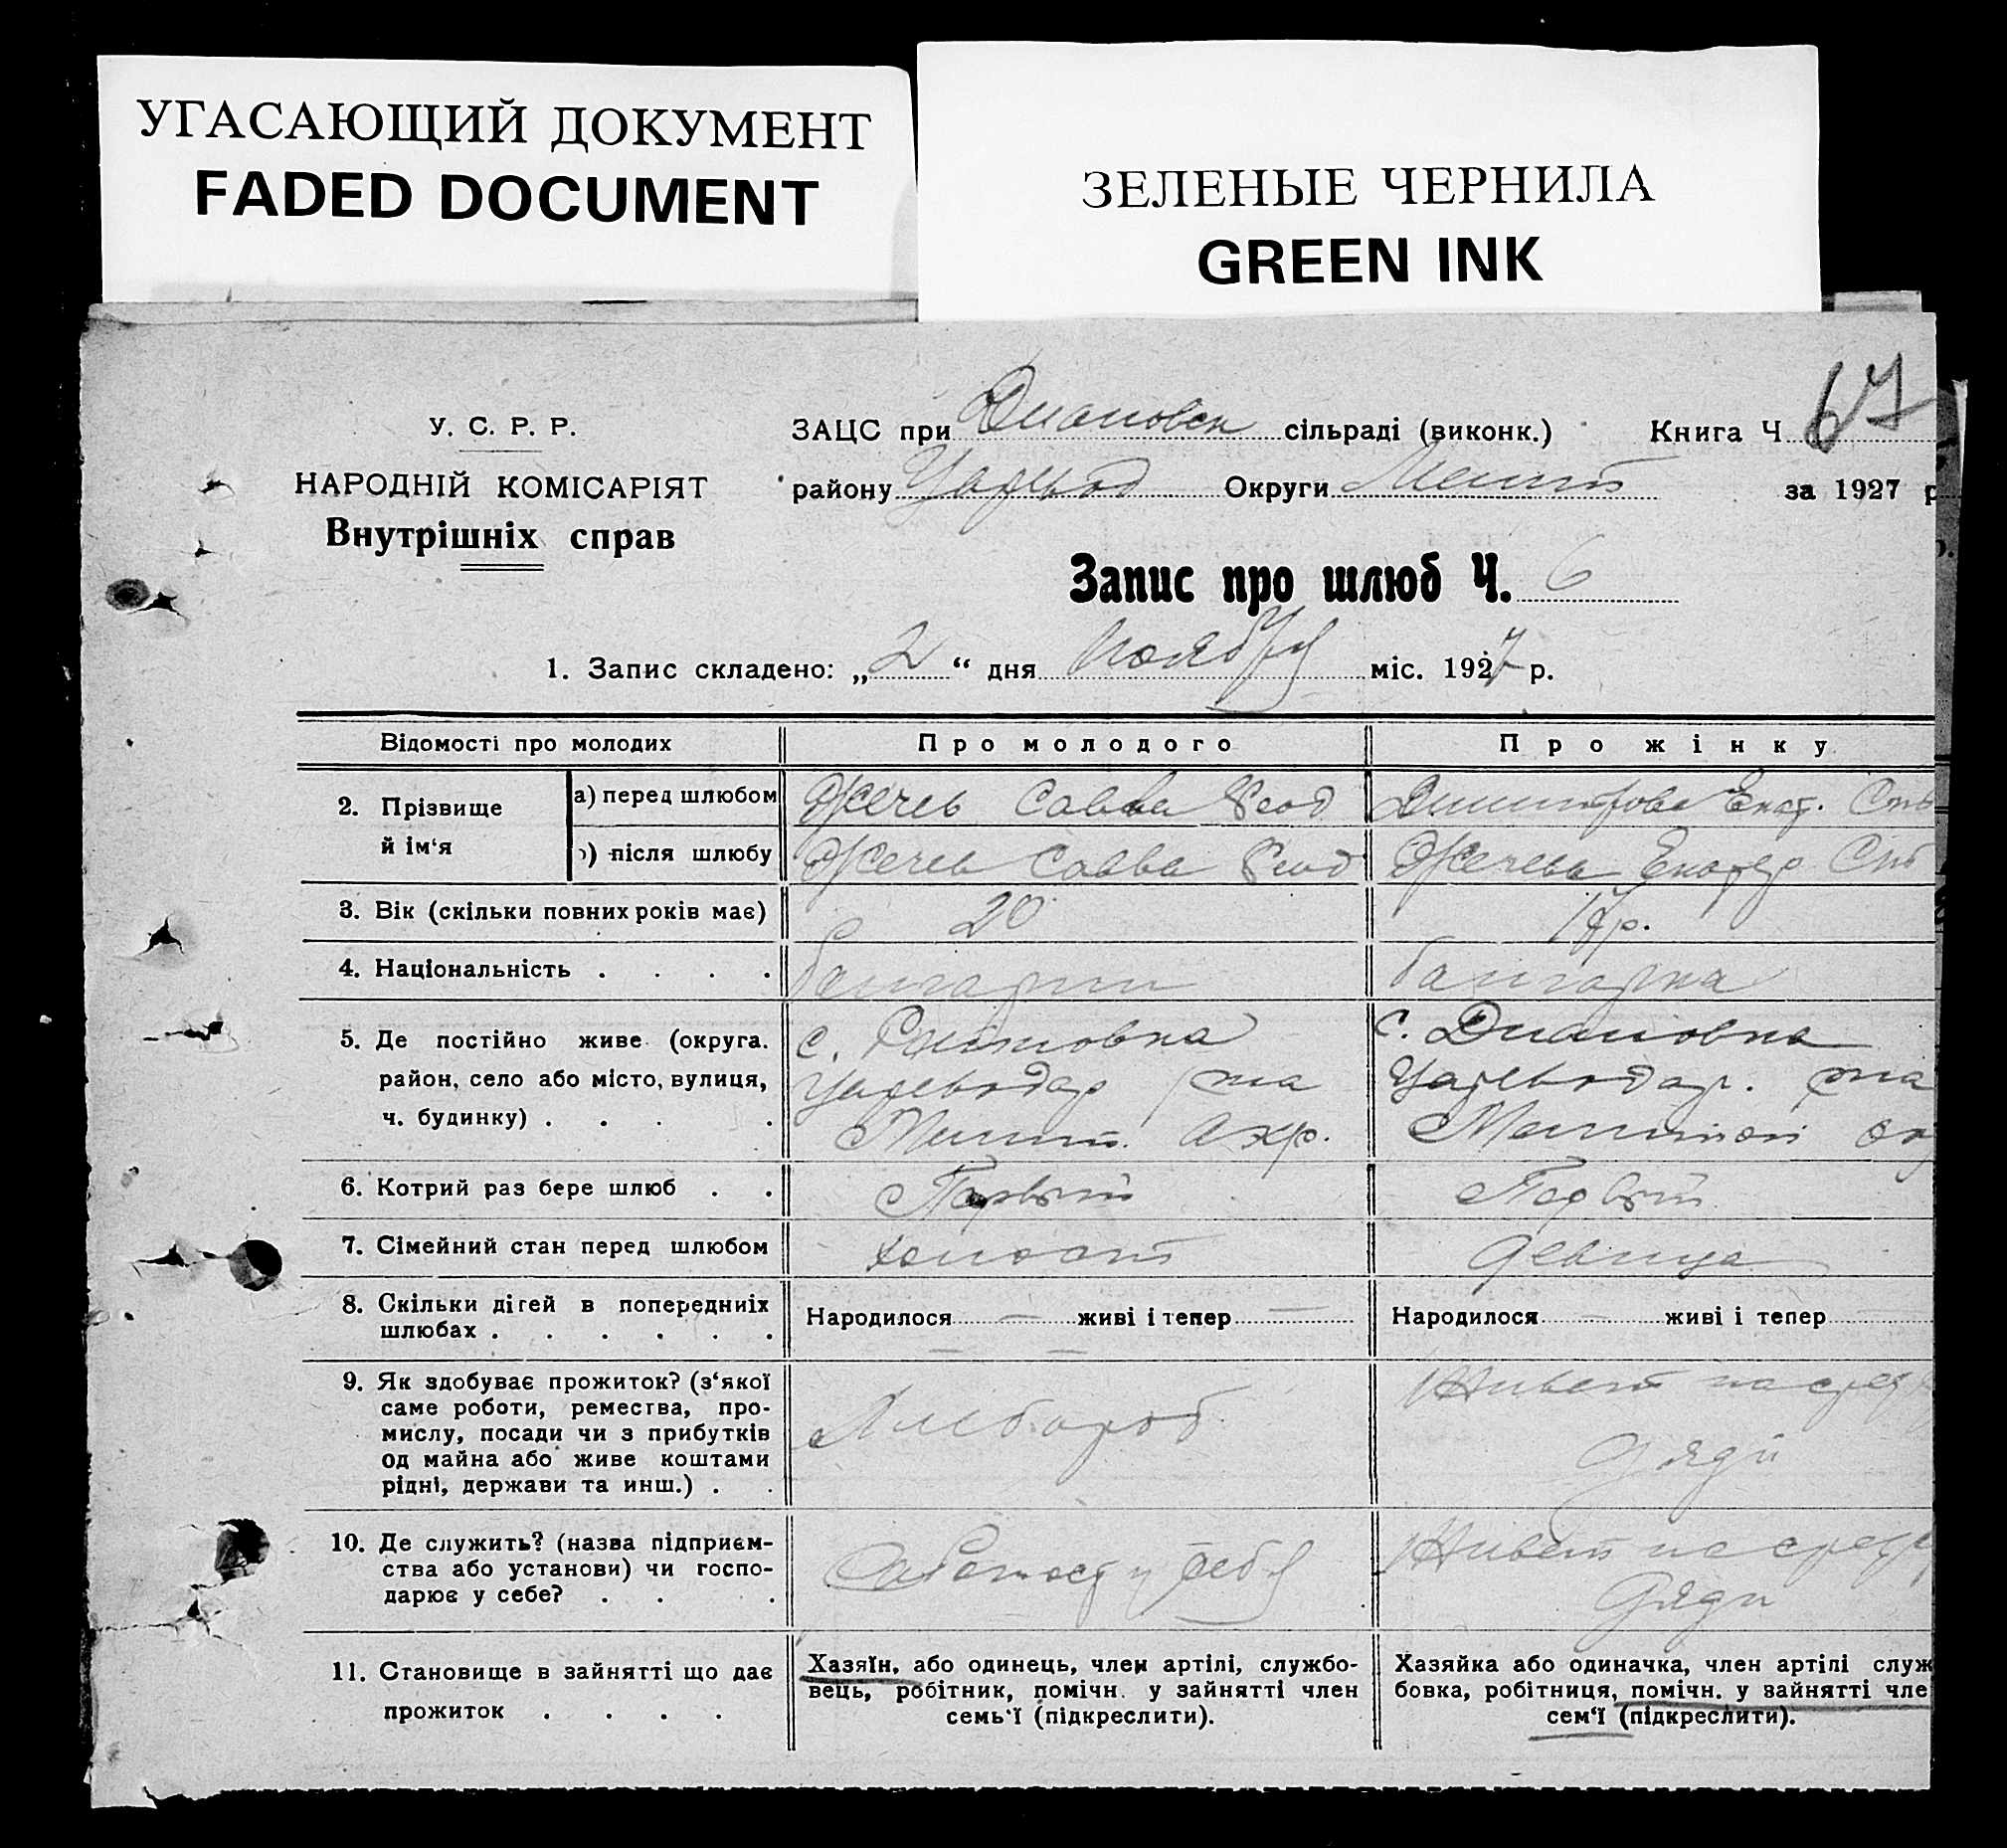 УГАСАЮЩИЙ ДОКУМЕНТ
FADED DOCUMENT
ЗЕЛЕНЫЕ ЧЕРНИЛА
GREEN INK
У. С. Р. Р.
НАРОДНІЙ КОМІСАРІЯТ
Внутрішніх справ
ЗАЦС при Диановск сільраді (виконк.) Книга Ч. 67
району Царевод Округи Мелит за 1927 р
Запис про шлюб Ч. 6
1. Запис складено: „2“ дня Ноября міс. 1927 р.
Відомості про молодих Про молодого Про жінку
2. Прізвище й ім‘я
а) перед шлюбом Жечев Савва Феод Димитрова Екат. Сте
після шлюбу Жечев Савва Феод Жечева Екатер Сте
3. Вік (скільки повних років має) 20 17р.
4. Національність . . . . болгарин болгарка
5. Де постійно живе (округа. с. с. Диановка
район, село або місто, вулиця, Цареводар р-на Цареводар. р-на
ч. будинку) . . . . Мелит. Окр. Мелитоп ок
6. Котрий раз бере шлюб . . Первый Первый
7. Сімейний стан перед шлюбом холост девица
8. Скільки дітей в попередниіх
шлюбах . . . . . . Народилося — живі і тепер — Народилося — живі і тепер
9. Як здобуває прожиток? (з‘якої
саме роботи, ремества, про-
мислу, посади чи з прибутків
од майна або живе коштами
рідні, держави та инш.) . .
Хлебороб
Живет на сред
дяди
10. Де служить? (назва підприєм-
ства або установи) чи госпо-
дарює у себе? . . .
Работает у себя
Живет на сред
дяди
11. Становище в зайнятті що дає
прожиток . . . .
Хазяїн, або одинець, член артілі, службо-
вець, робітник, помічн. у зайнятті член
семь‘ї (підкреслити).
Хазяйка або одиначка, член артілі служ
бовка, робітниця, помічн. у зайнятті чле
сем‘ї (підкреслити).